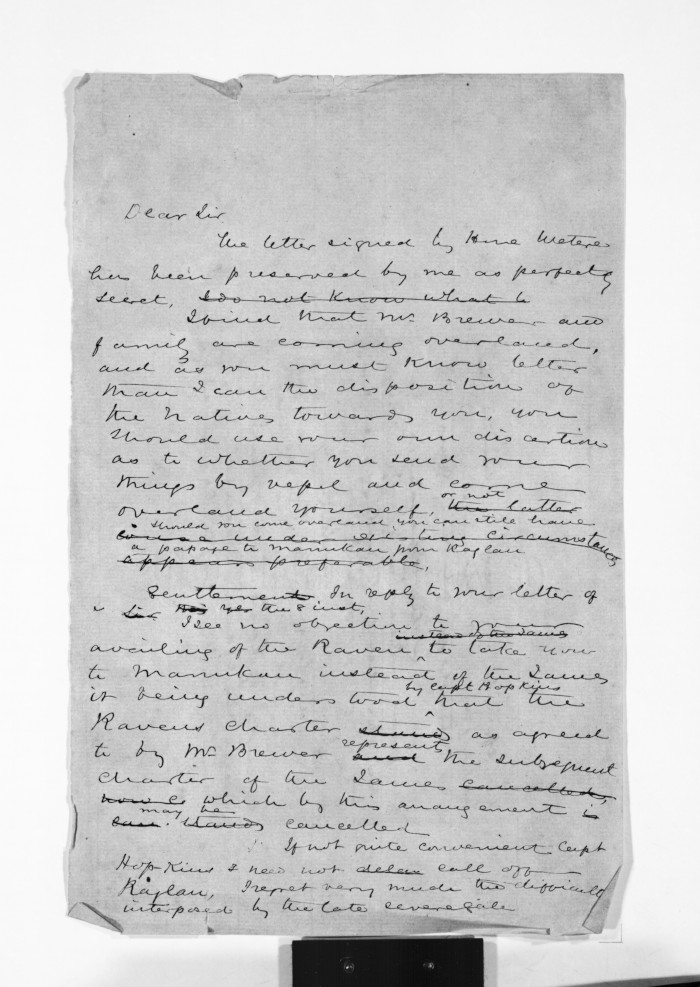 Dear Sir
The letter signed by Hone Metere
has been preserved by me as perfectly
secret, I do not know what b
I find that Mr Brewer and
family are coming overland,
and as you must know better
than I can the disposition of
the Natives towards you, you
should use your own discretion
as to whether you send your
things by vessel and come
overland yourself, or not the latter
should you come overland you can still have
course under existing circumstances
a passage to Manukau from Raglan
appears preferable,
Gentlemen In reply to your letter of
Sir the 8 inst,
I see no objection to your
instead of the James
availing of the Raven to take you
to Manukau instead of the James
by Capt Hopkins
it being understood that the
Ravens charter stands as agreed
to by Mr Brewer represents and the subsequent
charter of the James cancelled,
which by this arrangement is
may be
can stands cancelled
If not quite convenient Capt
Hopkins need not delay call off
Raglan, I regret very much the difficulty
interposed by the late severe gale